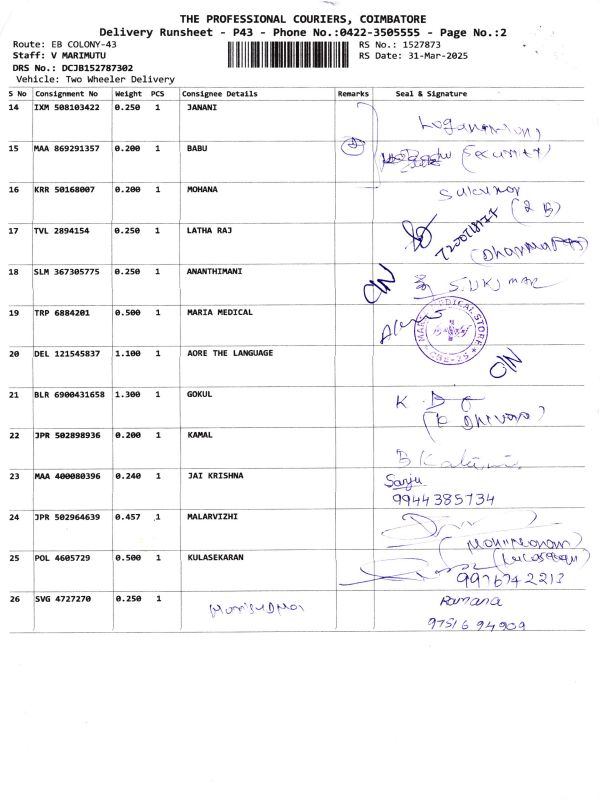 THE PROFESSIONAL COURIERS, COIMBATORE
Delivery Runsheet - P43 - Phone No.:0422-3505555 - Page No.:2
Route: EB COLONY-43 RS No.: 1527873
Staff: V MARIMUTU RS Date: 31-Mar-2025
DRS No.: DCJB152787302
Vehicle: Two Wheeler Delivery
S No Consignment No Weight PCS Consignee Details Remarks Seal & Signature
14 IXM 508103422 0.250 1 JANANI
15 MAA 869291357 0.200 1 BABU (Security)
16 KRR 50168007 0.200 1 MOHANA Sukumar (2 B)
17 TVL 2894154 0.250 1 LATHA RAJ
18 SLM 367305775 0.250 1 ANANTHIMANI S.UKUMAR
19 TRP 6884201 0.500 1 MARIA MEDICAL MEDICAL STORE CBE-25
20 DEL 121545837 1.100 1 AORE THE LANGUAGE
21 BLR 6900431658 1.300 1 GOKUL K
22 JPR 502898936 0.200 1 KAMAL
23 MAA 400080396 0.240 1 JAI KRISHNA Sanju
9944385734
24 JPR 502964639 0.457 1 MALARVIZHI
25 POL 4605729 0.500 1 KULASEKARAN
9976742213
26 SVG 4727270 0.250 1 Ramana
97516 94909